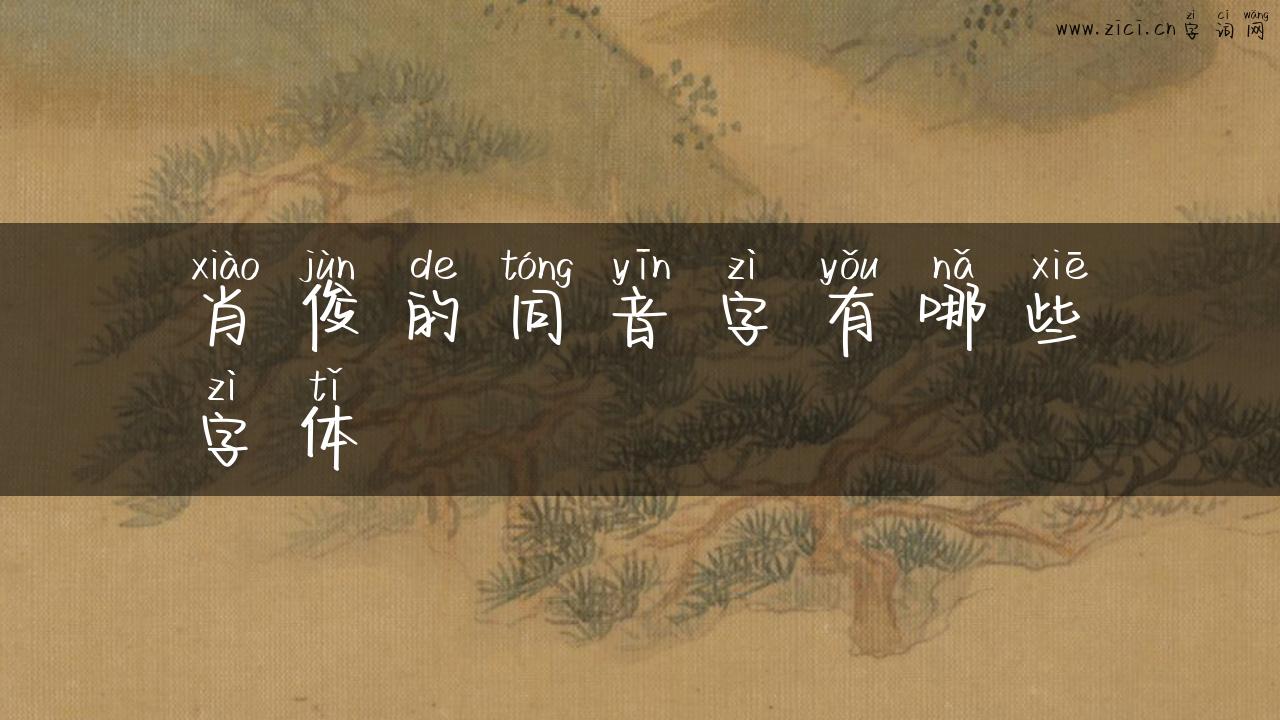 zì cí wǎng
www.zici.cn 字词网
xiào jùn de tóng yīn zì yǒu nǎ xiē
肖俊的同音字有哪些
zì tǐ
字体